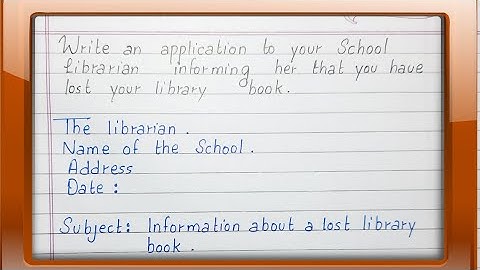 Write an application to your School
librarian informing her that you have
lost your library book.
The librarian.
Name of the School.
Address
Date :
Subject: Information about a lost library
book.